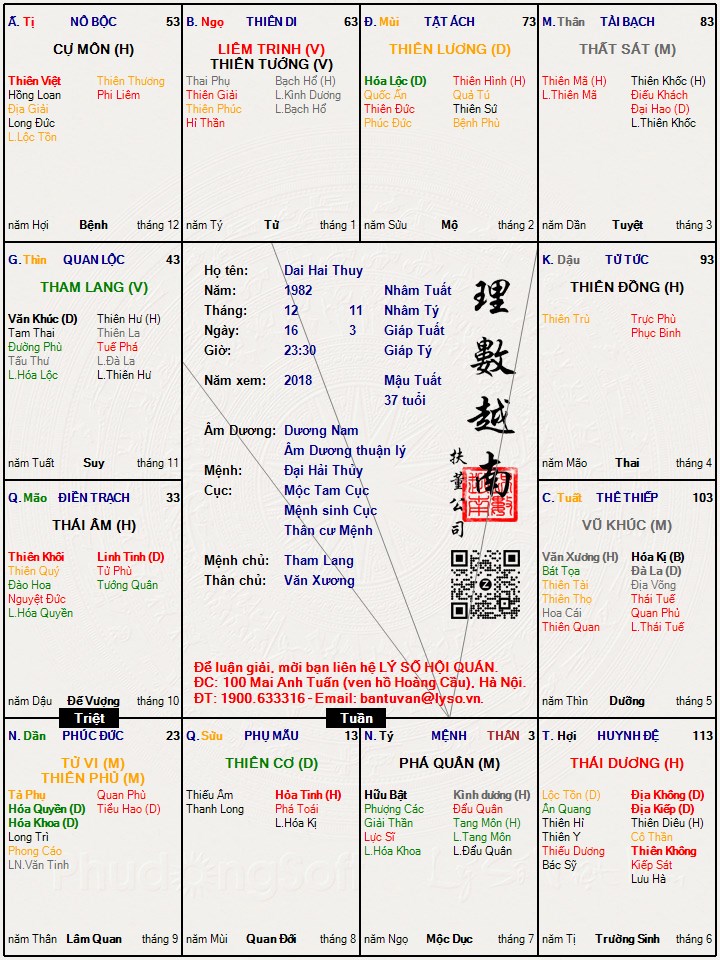 Ấ. Tị NÔ BỘC 53
CỰ MÔN (H)
Thiên Việt Thiên Thương
Hồng Loan Phi Liêm
Địa Giải
Long Đức
L.Lộc Tồn
năm Hợi Bệnh tháng 12
B. Ngọ THIÊN DI 63
LIÊM TRINH (V)
THIÊN TƯỚNG (V)
Thai Phụ Bạch Hổ (H)
Thiên Giải L.Kình Dương
Thiên Phúc L.Bạch Hổ
Hỉ Thần
năm Tý Tử tháng 1
Đ. Mùi TẬT ÁCH 73
THIÊN LƯƠNG (D)
Hóa Lộc (D) Thiên Hình (H)
Quốc Ấn Quả Tú
Thiên Đức Thiên Sứ
Phúc Đức Bệnh Phù
năm Sửu Mộ tháng 2
M. Thân TÀI BẠCH 83
THẤT SÁT (M)
Thiên Mã (H) Thiên Khốc (H)
L.Thiên Mã Điếu Khách
Đại Hao (D)
L.Thiên Khốc
năm Dần Tuyệt tháng 3
G. Thìn QUAN LỘC 43
THAM LANG (V)
Văn Khúc (D) Thiên Hư (H)
Tam Thai Thiên La
Đường Phù Tuế Phá
Tấu Thư L.Đà La
L.Hóa Lộc L.Thiên Hư
năm Tuất Suy tháng 11
Họ tên: Dai Hai Thuy
Năm: 1982 Nhâm Tuất
Tháng: 12 11 Nhâm Tý
Ngày: 16 3 Giáp Tuất
Giờ: 23:30 Giáp Tý
Năm xem: 2018 Mậu Tuất
37 tuổi
Âm Dương: Dương Nam
Âm Dương thuận lý
Mệnh: Đại Hải Thủy
Cục: Mộc Tam Cục
Mệnh sinh Cục
Thân cư Mệnh
Mệnh chủ: Tham Lang
Thân chủ: Văn Xương
理數越南
扶董公司
Để luận giải, mời bạn liên hệ LÝ SỐ HỘI QUÁN.
ĐC: 100 Mai Anh Tuấn (ven hồ Hoàng Cầu), Hà Nội.
ĐT: 1900.633316 - Email: bantuvan@lyso.vn.
K. Dậu TỬ TỨC 93
THIÊN ĐỒNG (H)
Thiên Trù Trực Phù
Phục Binh
năm Mão Thai tháng 4
Q. Mão ĐIỀN TRẠCH 33
THÁI ÂM (H)
Thiên Khôi Linh Tinh (D)
Thiên Quý Tử Phù
Đào Hoa Tướng Quân
Nguyệt Đức
L.Hóa Quyền
năm Dậu Đế Vượng tháng 10
C. Tuất THÊ THIẾP 103
VŨ KHÚC (M)
Văn Xương (H) Hóa Kị (B)
Bát Tọa Đà La (D)
Thiên Tài Địa Võng
Thiên Thọ Thái Tuế
Hoa Cái Quan Phủ
Thiên Quan L.Thái Tuế
năm Thìn Dưỡng tháng 5
Triệt
Tuần
N. Dần PHÚC ĐỨC 23
TỬ VI (M)
THIÊN PHỦ (M)
Tả Phụ Quan Phù
Hóa Quyền (D) Tiểu Hao (D)
Hóa Khoa (D)
Long Trì
Phong Cáo
LN.Văn Tinh
năm Thân Lâm Quan tháng 9
Q. Sửu PHỤ MẪU 13
THIÊN CƠ (D)
Thiếu Âm Hỏa Tinh (H)
Thanh Long Phá Toái
L.Hóa Kị
năm Mùi Quan Đới tháng 8
N. Tý MỆNH THÂN 3
PHÁ QUÂN (M)
Hữu Bật Kình dương (H)
Phượng Các Đẩu Quân
Giải Thần Tang Môn (H)
Lực Sĩ L.Tang Môn
L.Hóa Khoa L.Đẩu Quân
năm Ngọ Mộc Dục tháng 7
T. Hợi HUYNH ĐỆ 113
THÁI DƯƠNG (H)
Lộc Tồn (D) Địa Không (D)
Ân Quang Địa Kiếp (D)
Thiên Hỉ Thiên Diêu (H)
Thiên Y Cô Thần
Thiếu Dương Thiên Không
Bác Sỹ Kiếp Sát
Lưu Hà
năm Tị Trường Sinh tháng 6